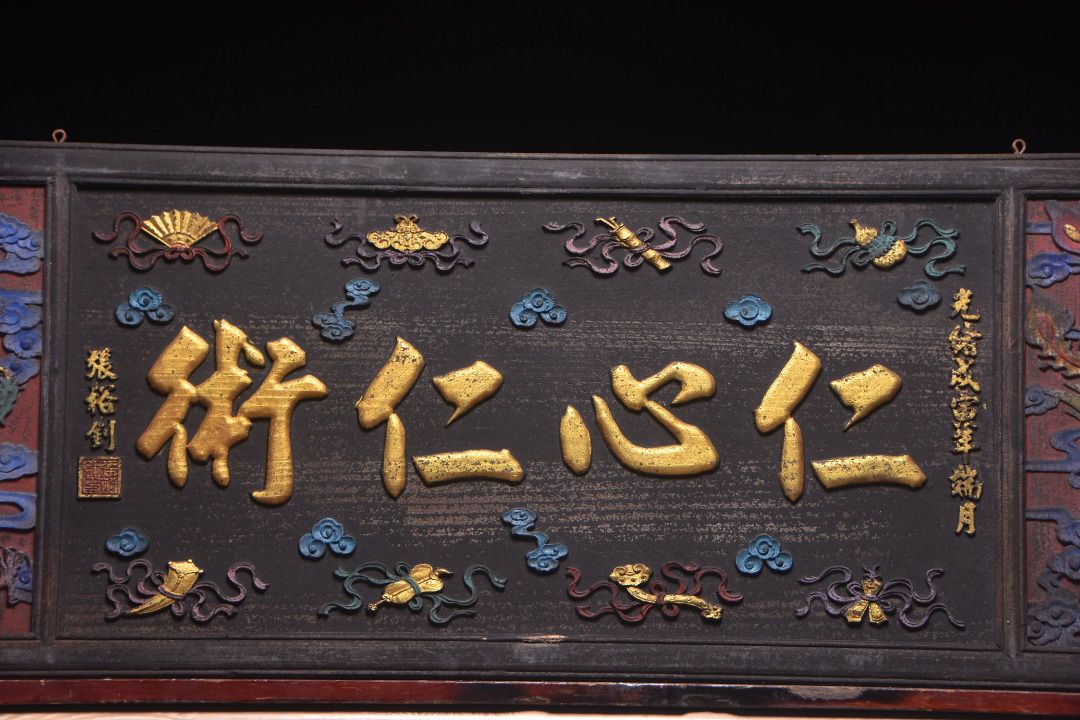 光緒戊寅年瑞月
仁心仁術
張裕釗